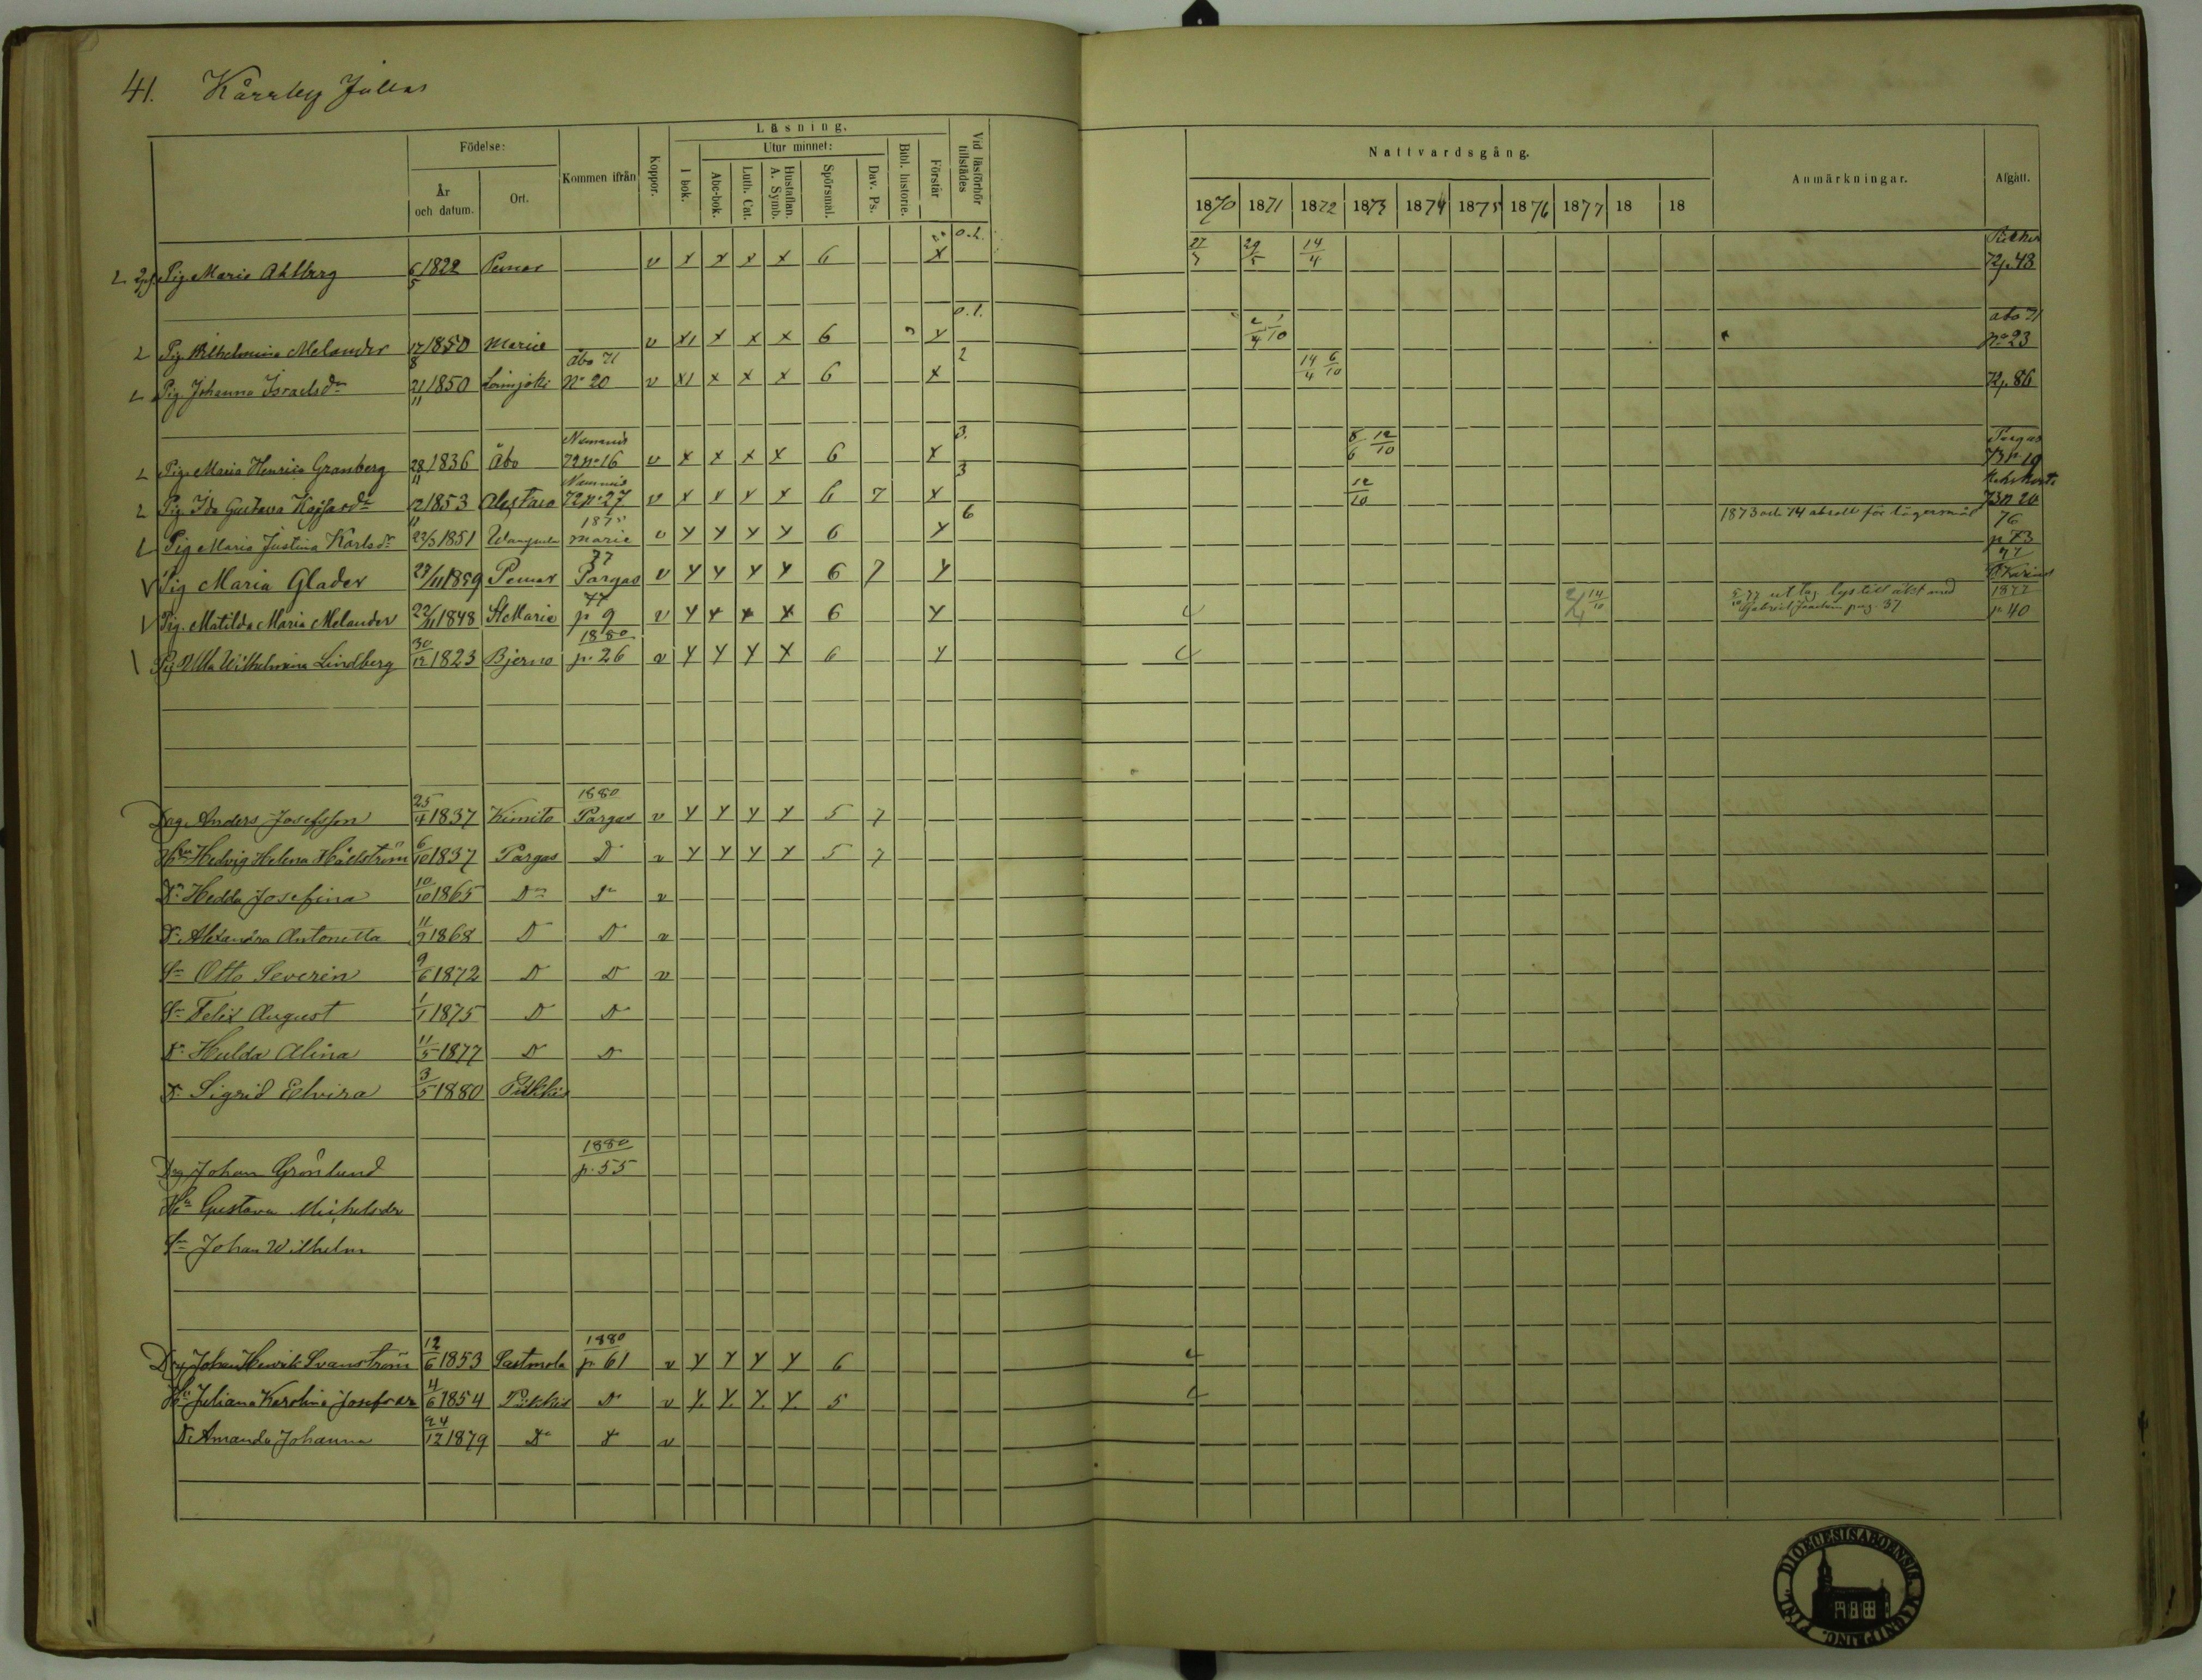 41. Kårrby Jullas
Läsning.
Födelse:
Utur minnet:
År och datum.
Ort.
Kommen ifrån
Koppor.
I bok.
Abc-bok.
Luth. Cat.
Hustaflan. A. Symb.
Spörsmal.
Dav. Ps.
Bibl. historie.
Förstår
Vid läsförhör tillstädes
Nattvardsgång.
1870 1871 1872 1873 1874 1875 1876 1877 18 18
Anmärkningar.
Afgått.
Pig. Maria Ahlberg 6/5 1822 Pemar v x x x x 6 x 29/5 14/4 72 p. 48
Pig. Wilhelmina Melander 17/8 1850 Marie v x1 x x x 6 Åbo 71 No 23
Pig. Johanna Israelsdr 21/11 1850 Loimjoki Åbo 71 No 20 v x1 x x x 6 x 2 14/4 6/10 72 p. 86
Pig. Maria Henrica Granberg 28/11 1836 Åbo 72 no 16 v x x x x 6 x 3. 8/6 12/10 Pargas 73 n 19
Pig. Ida Gustava 1853 Alastaro 72 n. 27 v x x x x 6 7 x 3 12/10 73 n 20
Pig Maria Justina Karlsdr 22/3 1851 1875 Marie v x x x x 6 x 6 1873 och 74 absolt för lägersmål 76 p 73
Pig Maria Glader 29/11 1859 Pemar 77 Pargas v x x x x 6 7 x
Pig. Matilda Maria Melander 22/11 1848 St Marie 77 p 9 v x x x x 6 x 14/10 5/10 77 uttog lys till äkt med Gabriel Joachim pag. 37 1877 p. 40
Pig Ulla Wilhelmina Lindberg 30/12 1823 Bjerno 1880 p. 26 v x x x x 6 x
Drg. Anders Josefsson 25/4 1837 Kimito 1880 Pargas v x x x x 5 7
Hu Hedvig Helena Hällström 6/10 1837 Pargas D v x x x x 5 7
Dr Hedda Josefina 10/10 1865 Do Do v
Dr Alexandra Antonetta 11/9 1868 D D v
Sn Otto Severin 9/6 1872 D D v
Sn Felix August 1/1 1875 D D
Dr Hulda Alina 11/5 1877 D D
Dr Sigrid Elvira 3/5 1880 Pikkis
Drg Johan Grönlund 1880 p. 55
Hu Gustava Michelsdr
Sn Johan Wilhelm
Drg Johan Henrik Svanström 12/6 1853 Sastmola 1880 p. 61 v x x x x 6
Hu Juliana Karolina Josefsdr 4/6 1854 Pikkis D v x x x x 5
Dr Amanda Johanna 24/12 1879 Do D v
DIOECESIS ABOENSIS